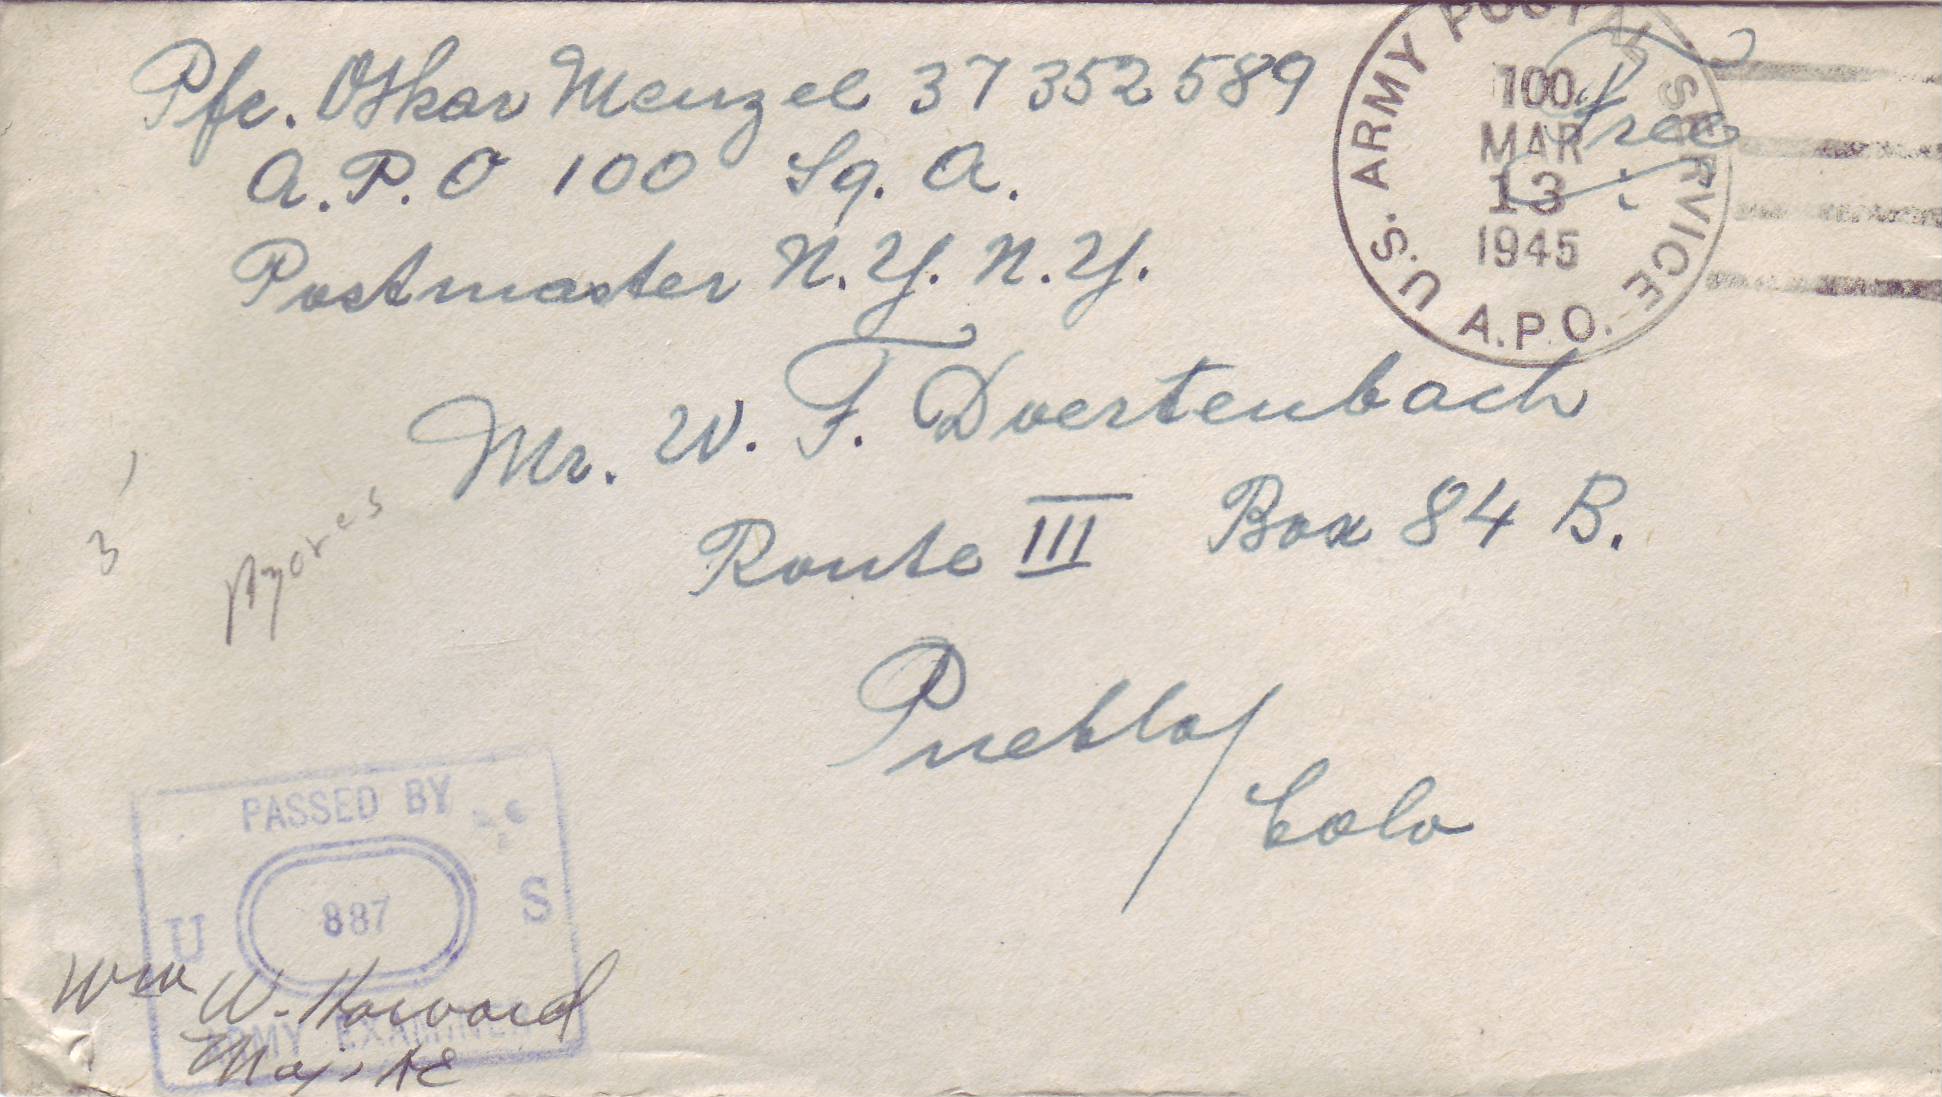 Pfc. Oskar Menzel 37 352 589
A.P.O 100 Sq. A.
Postmaster N.Y. N.Y.
Free
U.S. ARMY POSTAL SERVICE
100
MAR
13
1945
A.P.O.
Mr. W. F. Doertenbach
Route III Box 84 B.
Pueblo/
Colo
3'
Azores
PASSED BY
U 887 S
ARMY EXAMINER
Wm W. Howard
Maj.